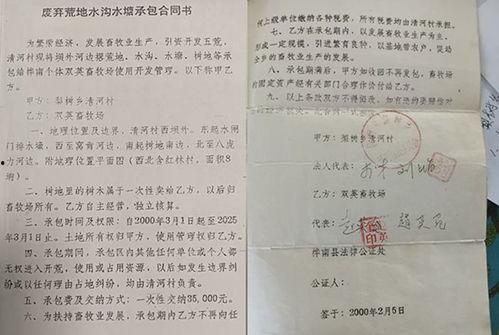 废弃荒地水沟水塘承包合同书
为繁荣经济，发展畜牧业生产，引资开发五荒，
清河村现将坝外河边摆荒地、水沟、水塘、树地等承
包给桦南个体双英畜牧场使用开发管理。以下称甲乙
方。
甲方：梨树乡清河村
乙方：双英畜牧场
一、地理位置及边界，清河村西坝外。东起水闸
门排水壕，西至窝肯河边，南起树地南边，北至八虎
力河边。附地理位置平面图（西北含红林村，面积8
垧）
二、树地里的树木属于一次性卖给乙方，以后归
畜牧场所有。乙方自主经营，独立核算。
三、承包时间及权限：自2000年3月1日起至2025
年3月1日止。土地所有权归甲方，使用管理权归乙方。
四、承包期间，承包区内其他任何单位或个人都
无权进入开荒，使用或占用资源，以后如发生边界纠
纷或以任何理由占地纠纷，均由清河村负责。
五、承包费及交纳方式：一次性交纳35,000元。
六、为扶持畜牧业发展，承包期内乙方不再向任
何上级单位缴的各种税费，所有税费均由清河村承担。
七、乙方在承包期内，以发展畜牧业生产为主，
形成一定规模，引进繁育良种，以基地带农户，促动
全乡的畜牧业生产的发展。
八、承包期满后，甲方如收回不再发包，畜牧场
的固定资产经有关部门合理作价付给乙方。
九、以上条款双方不得
甲方：梨树乡清河村
法人代表：
乙方：双英畜牧场
代表：
桦南县法律公证处
公证人：
签于：2000年2月5日